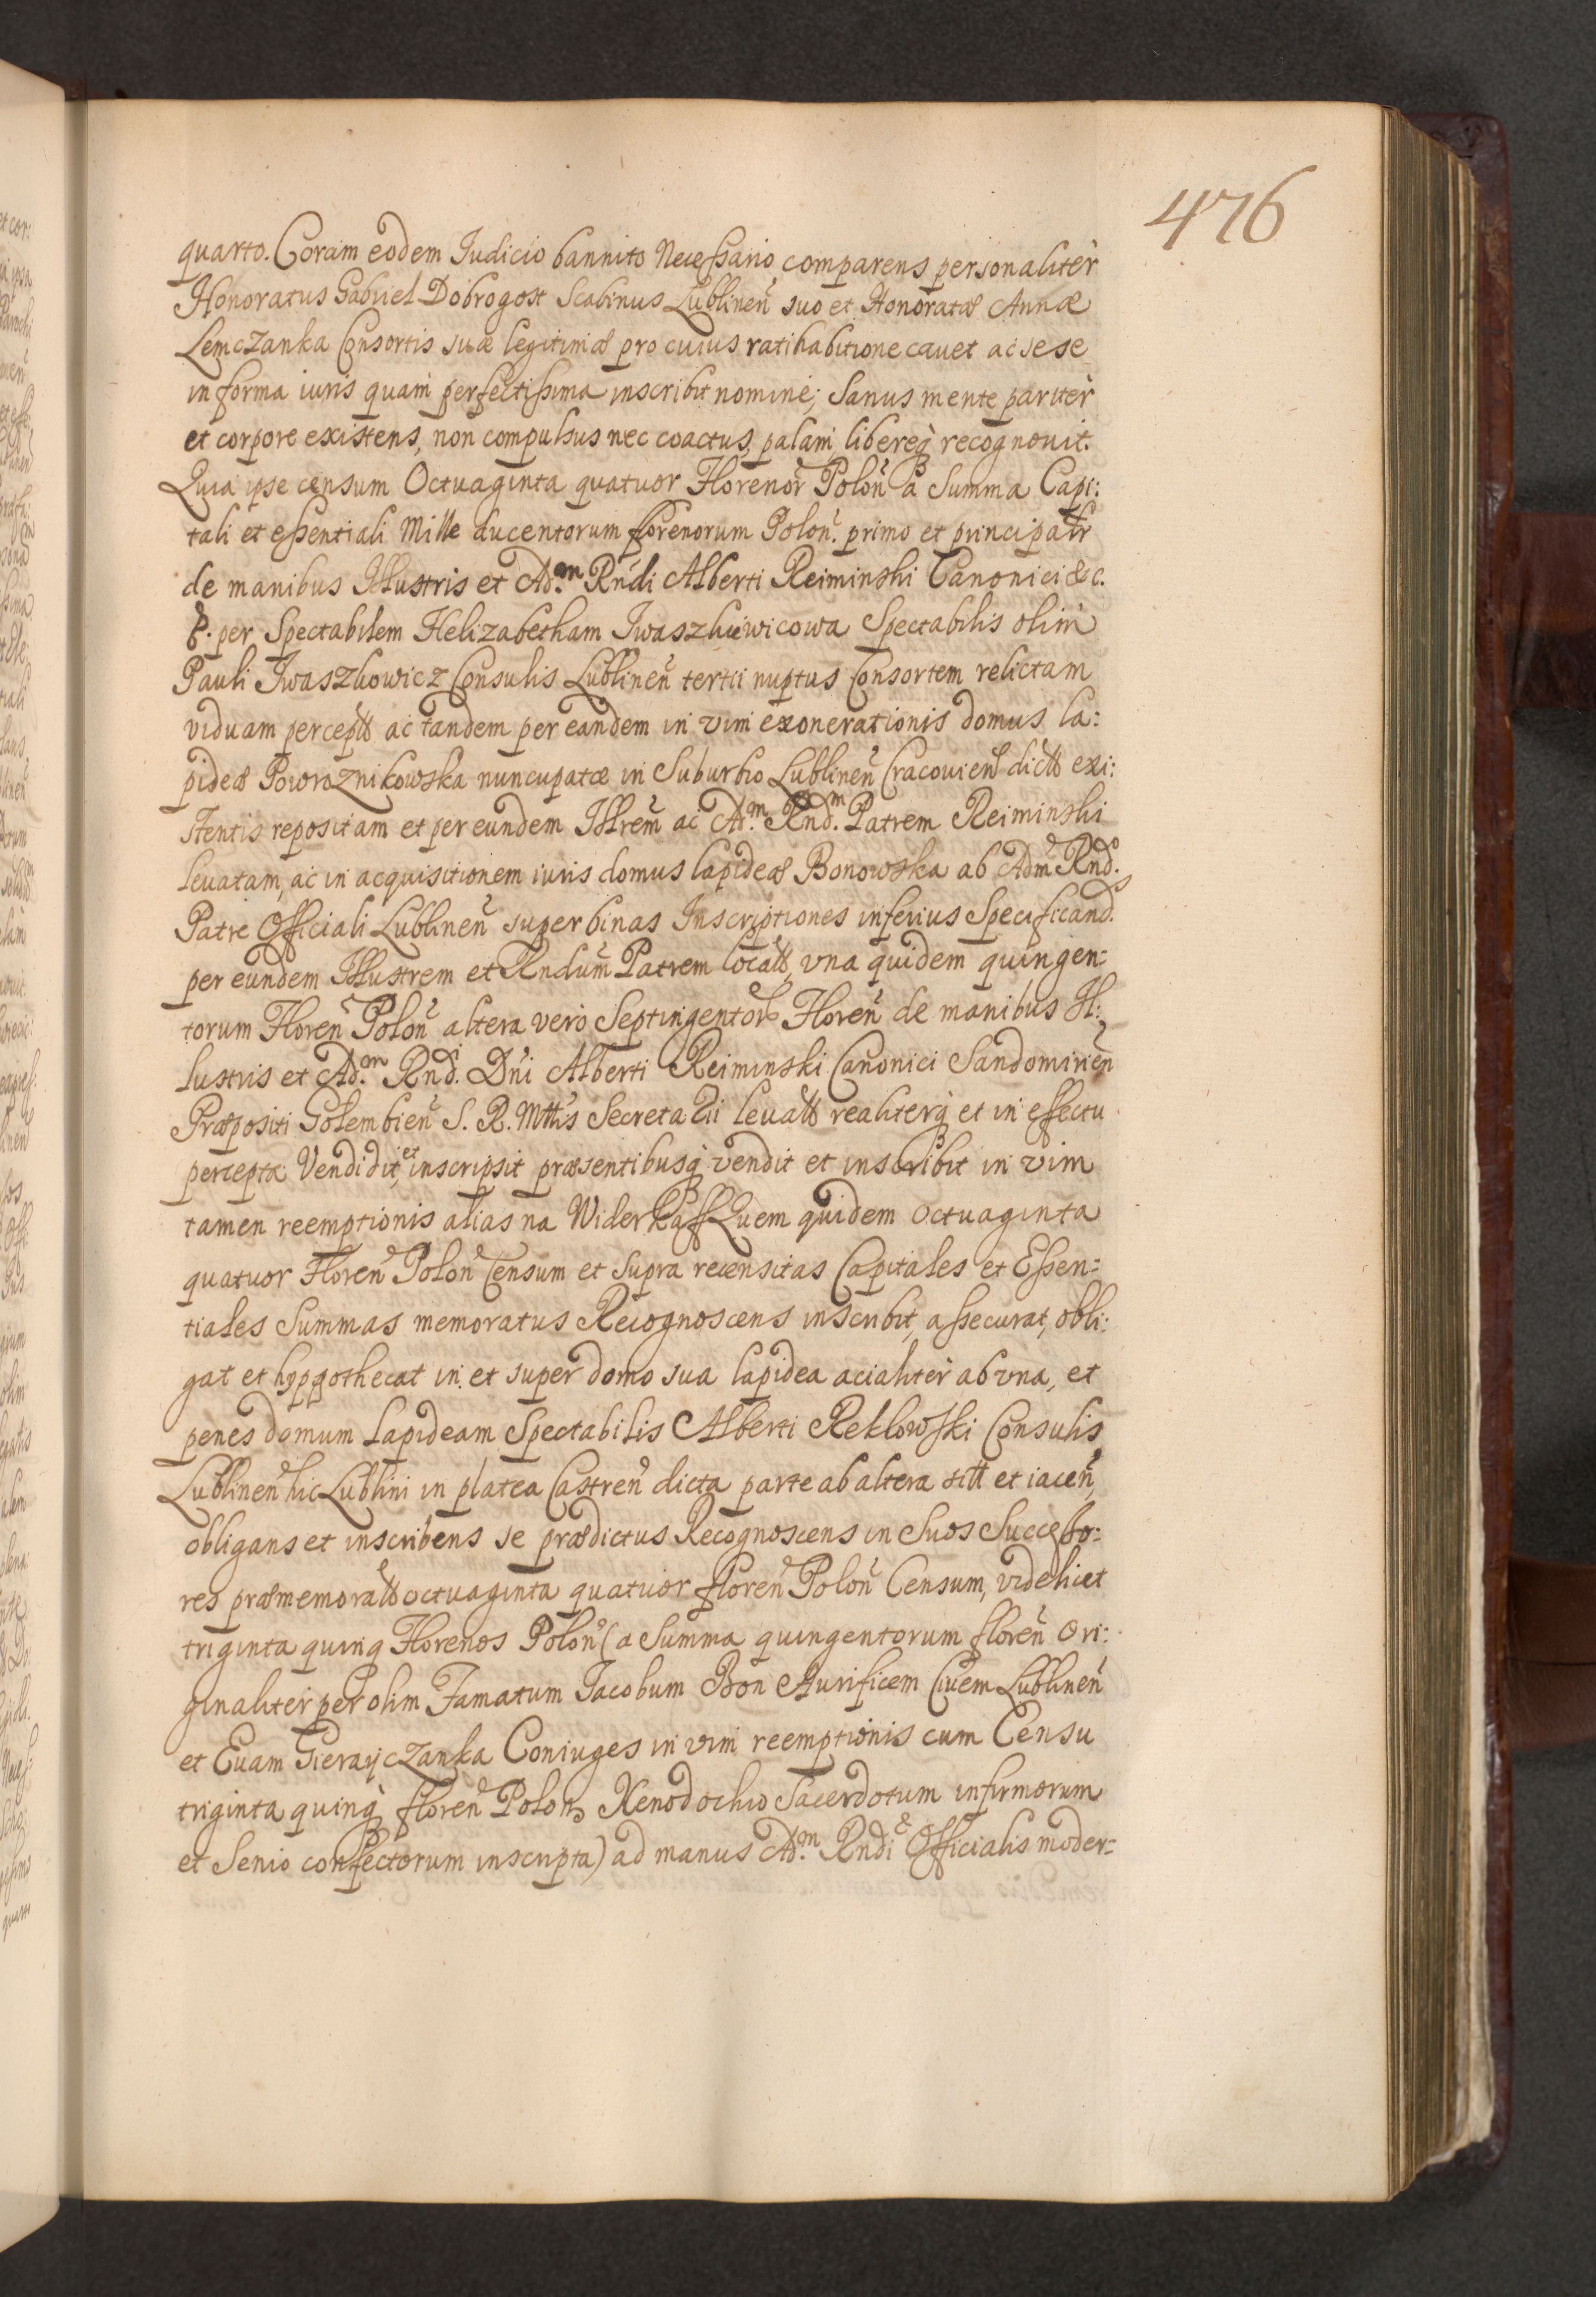 476
quarto. Coram eodem Judicio bannito Necessario comparens personaliter
Honoratus Gabriel Dobrogost Scabinus Lublineñ suo et Honoratæ Annæ
Lemczanka Consortis suæ legitimæ pro cuius ratihabitione cavet ac sese
in forma iuris quam perfectissima inscribit nomine; Sanus mente pariter
et corpore existens, non compulsus nec coactus, palam libereq̃ recognovit.
Quia ipse censum Octuaginta quatuor Florenor̃ Poloñ a Summa Capi:
tali et essentiali Mille ducentorum florenorum Poloñ. primo et principalr
de manibus Illustris et Ad.m Rñdi Alberti Reiminski Canonici &c.
&. per Spectabilem Helizabetham Iwaszkiewicowa Spectabilis olim
Pauli Iwaszkowicz Consulis Lublineñ tertii nuptus Consortem relictam
viduam percept ac tandem per eandem in vim exonerationis domus la:
pideæ Powroznikowska nuncupatæ in Suburbio Lublineñ Cracovien dict exi:
stentis repositam et per eundem Illrem̃ ac Ad.m Rnd.m Patrem Reiminski
levatam, ac in acquisitionem iuris domus lapideæ Bonowska ab Adm Rnd.o
Patre Officiali Lublineñ super binas Inscriptiones inferius Specificand.s
per eundem Illustrem et Rndum̃ Patrem locat, una quidem quingen:
torum Floreñ Poloñ altera vero Septingentor Floreñ de manibus Il:
lustris et Ad.m Rnd.i Dñi Alberti Reiminski Canonici Sandomirieñ
Præpositi Golembieñ S. R. Mttis Secretarii levat realiterq̃ et in effectu
percepta Vendidit, et inscripsit præsentibusq̃ vendit et inscribit in vim
tamen reemptionis alias na Widerkaff Quem quidem octuaginta
quatuor Floreñ Poloñ Censum et supra recensitas Capitales et Essen:
tiales Summas memoratus Recognoscens inscribit, assecurat, obli:
gat et hyppothecat in et super domo sua lapidea acialiter ab una, et
penes domum lapideam Spectabilis Alberti Reklowski Consulis
Lublineñ hic Lublini in platea Castreñ dicta parte ab altera sitt et iaceñ,
obligans et inscribens se prædictus Recognoscens in Suos Successo:
res præmemorat octuaginta quatuor floreñ Poloñ Censum, videlicet
triginta quinq̃ Florenos Poloñ (a Summa quingentorum floreñ ori:
ginaliter per olim Famatum Jacobum Bon Aurificem Civem Lublineñ
et Evam Gierayczanka Coniuges in vim reemptionis cum Censu
triginta quinq̃ floreñ Polon Xenodochio Sacerdotum infirmorum
et Senio confectorum inscripta) ad manus Ad.m Rndi & Officialis moder: